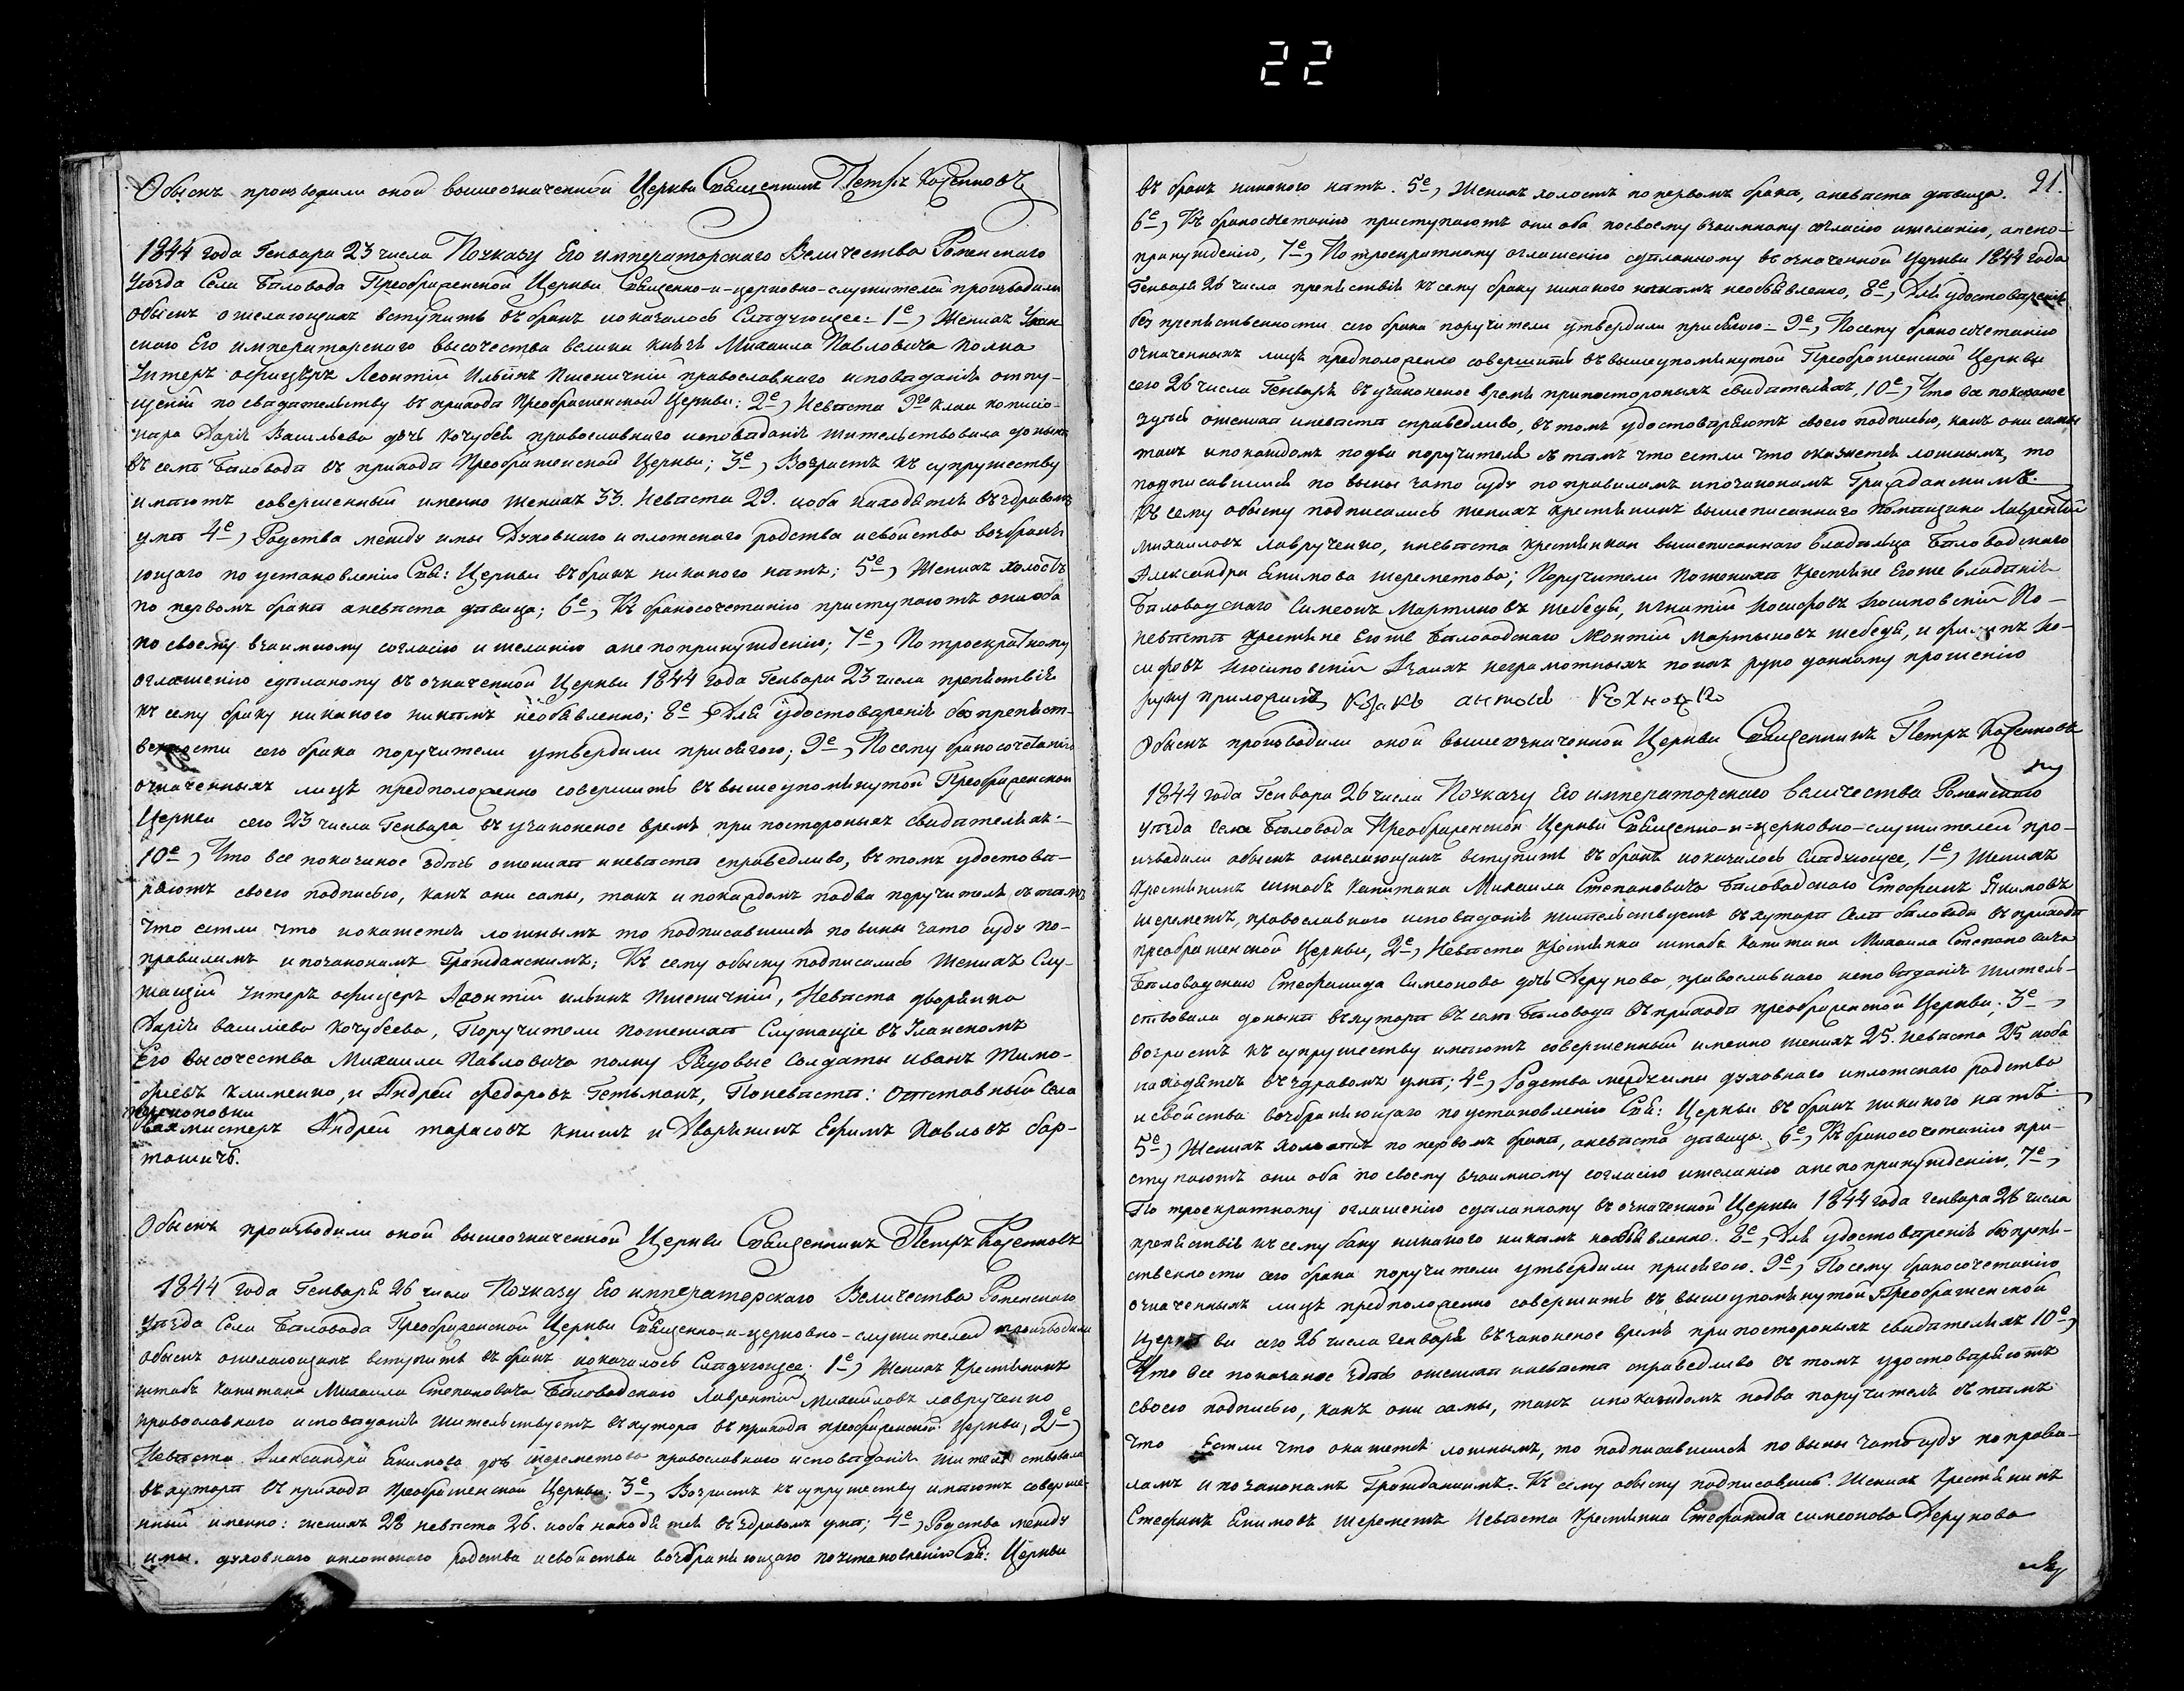 22
Обыскъ производили оной вышеозначенной Церкви Священникъ Петръ
1844 года Генваря 23 числа Поуказу Его императорскаго Величества Роменскаго
Уѣзда Села Бѣловода Преображенской Церкви Священно-и-церковно-служители производили
обыскъ ожелающихъ вступить въ бракъ иоказалось Слѣдующее: 1е, Женихъ Улан
скаго Его императорскаго высочества велика князя Михаила Павловича полка
Унтеръ офицеръ Леонтій Ильинъ Пшеничній православнаго исповѣданія отпу-
щеній по свидѣтельству въ приходѣ Преображенской Церкви: 2е, Невѣста 9го клас комисіо-
нера Дарія Васильева дочь Кочубей православнаго исповѣданія жительствовала донынѣ
въ селѣ Бѣловодѣ въ приходѣ Преображенской Церкви; 3е, Возрастъ къ супружеству
имѣютъ совершенный именно женихъ 33. Невѣста 29. иоба находятся въ здравомъ
умѣ 4е, Родства между ими Духовнаго и плотскаго родства исвойства возбраня
ющаго по установленію Свя: Церкви въ бракъ никакого нѣтъ; 5е, Женихъ холостъ
по первомъ бракѣ аневѣста дѣвица; 6е, Къ бракосочетанію приступаютъ они оба
по своему взаимному согласію и желанію ане попринужденію; 7е, По троекратному
оглашенію сдѣланому въ означенной Церкви 1844 года Генваря 23 числа препятствія
къ сему браку никакого никѣмъ необявленно; 8е, Для удостовѣренія безпрепятст-
венности сего брака поручители утвердили присягою; 9е, Посему бракосочетаніе
означенныхъ лицъ предположенно совершить въ вышеупомянутой Преображенской
Церкви сего 23 числа Генваря въ узаконеное время при постороныхъ свидѣтеляхъ:
10е, Что все показаное здѣсь ожениxѣ иневѣстѣ справедливо, въ томъ удостовѣ-
ряютъ своею подписью, какъ они самы, такъ и покаждомъ подва поручителя сътѣмъ
что естли что иокажется ложнымъ то подписавшиися повины зато суду по-
правиламъ и позаконамъ Гражданскимъ; Къ сему обыску подписались Женихъ Слу-
жащій Унтеръ офицеръ Леонтій ильинъ Пшеничній, Невѣста дворянка
Дарія василіева Кочубеева, Поручители поженихѣ Служащіе въ Уланскомъ
Его высочества Михаила Павловича полку Рядовые Солдаты Иванъ Тимо-
фіевъ Клименко, и Андрей Федоровъ Гетьманъ, Поневѣстѣ: Отставный села
вахмистеръ Андрей тарасовъ книшъ и Дворянинъ Ефимъ Павловъ бар-
ташичъ.
Обыскъ производили оной вышеозначенной Церкви Священникъ Петръ
1844 года Генваря 26 числа Поуказу Его императорскаго Величества Роменскаго
уѣзда Села Бѣловода Преображенской Церкви Священно-и-церковно-служители производили
обыскъ ожелающихъ вступить въ бракъ иоказалось Слѣдующее: 1е, Женихъ Крестянинъ
штабъ капитана Михаила Степановича Бѣловодскаго Лаврентій Михайловъ лаврученко
православнаго исповѣданія жительствуетъ въ хуторѣ въ приходѣ преображенской Церкви, 2е,
Невѣста Александра Екимова дочь шереметова православнаго исповѣданія жительствовала
въ хуторѣ въ приходѣ Преображенской Церкви; 3е, Возрастъ къ супружеству имѣютъ соверше-
нный именно: женихъ 28 невѣста 26. иоба находятся въ здравомъ умѣ; 4е, Родства между
ими духовнаго иплотскаго родства исвойства возбраняющаго поустановленію Свя: Церкви
21.
въ бракъ никакого нѣтъ. 5е, Женихъ холостъ попервомъ бракѣ, аневѣста дѣвица.
6е, Къ бракосочетанію приступаютъ они оба посвоему взаимному согласію ижеланію, анепо-
принужденію, 7е, Потроекратному оглашенію сдѣланному въ означенной Церкви 1844 года
Генваря 26 числа препятствія къ сему браку никакого никѣмъ необявленно, 8е, Для удостовѣренія
безпрепятственности сего брака поручители утвердили присягою 9е, Посему бракосочетаніе
означенныхъ лицъ предположенно совершить въ вышеупомянутой Преображенской Церкви
сего 26 числа Генваря въ узаконеное время припостороныхъ свидѣтеляхъ, 10е, Что все показаное
здѣсь оженихѣ иневѣстѣ справедливо, въ томъ удостовѣряютъ своею подписью, какъ они самы
такъ ипокаждомъ подва поручителя сътѣмъ что естли что окажется ложнымъ, то
подписавшіися по вины зато суду по правиламъ ипозаконамъ Гражданскимъ.
Къ сему обыску подписались женихъ крестянинъ вышеписаннаго помѣщика Лаврентій
михаиловъ лаврученко, иневѣста крестянка вышеписаннаго владѣльца Бѣловодскаго
Александра Екимова шереметова; Поручители Поженихѣ крестяне Егоже владѣнія
Бѣловодскаго Симеонъ Мартыновъ шебедя, игнатій іосифовъ іосиповскій По-
невѣстѣ крестяне Егоже Бѣловодскаго Леонтій Мартыновъ шебедя, и филипъ іо-
сифовъ іосиповскій Азаихъ неграмотныхъ поихъ руко данному прошенію
руку приложилъ козакъ антоній
Обыскъ производили оной вышеозначенной Церкви Священникъ Петръ
1844 года Генваря 26 числа Поуказу Его императорскаго величества Роменскаго
уѣзда села Бѣловода Преображенской Церкви Священно-и-церковно-служителей про-
изводили обыскъ ожелающихъ вступить въ бракъ иоказалось слѣдующее, 1е, Женихъ
Крестянинъ штабъ Капитана Михаила Степановича Бѣловодскаго Стефанъ Якимовъ
шереметъ, православнаго исповѣданія жительствуетъ въ хуторѣ села бѣловода въ приходѣ
преображенской Церкви, 2е, Невѣста крестянка штабъ капитана Михаила Степановича
Бѣловодскаго Стефанида Симеонова дочь Дерунова, православнаго исповѣданія житель-
ствовала донынѣ въ хуторѣ въ селѣ Бѣловодѣ въ приходѣ преображенской Церкви; 3е,
возрастъ къ супружеству имѣютъ совершенный именно женихъ 25. невѣста 25 иоба
находятся въ здравомъ умѣ; 4е, Родства межъими духовнаго иплотскаго родства
исвойства возбраняющаго поустановленію Свя: Церкви въ бракъ никакого нѣтъ
5е, Женихъ холостъ по первомъ бракѣ, аневѣста дѣвица. 6е, Къ бракосочетанію при-
ступаютъ они оба по своему взаимному согласію ижеланію ане попринужденію, 7е,
По троекратному оглашенію сдѣланному въ означенной Церкви 1844 года генваря 26 числа
препятствія къ сему баку никакого никѣмъ необявленно. 8е, Для удостовѣренія безпрепя-
ственности сего брака поручители утвердили присягою. 9е, Посему бракосочетаніе
означенныхъ лицъ предположенно совершить въ вышеупомянутой Преображенской
церкви сего 26 числа генваря въ законеное время припостороныхъ свидѣтеляхъ 10е,
Что все показаное здѣсь оженихѣ иневѣстѣ справедливо въ томъ удостовѣряютъ
своею подписью, какъ они самы, такъ ипокаждомъ подва поручителя сътѣмъ
что Естли что окажется ложнымъ, то подписавшіися повины затосуду поправи-
ламъ и позаконамъ Гражданкимъ. Къ сему обыску подписавшись: Женихъ Крестянинъ
Стефанъ Екимовъ шереметъ Невѣста Крестянка Стефанида симеонова Дерунова